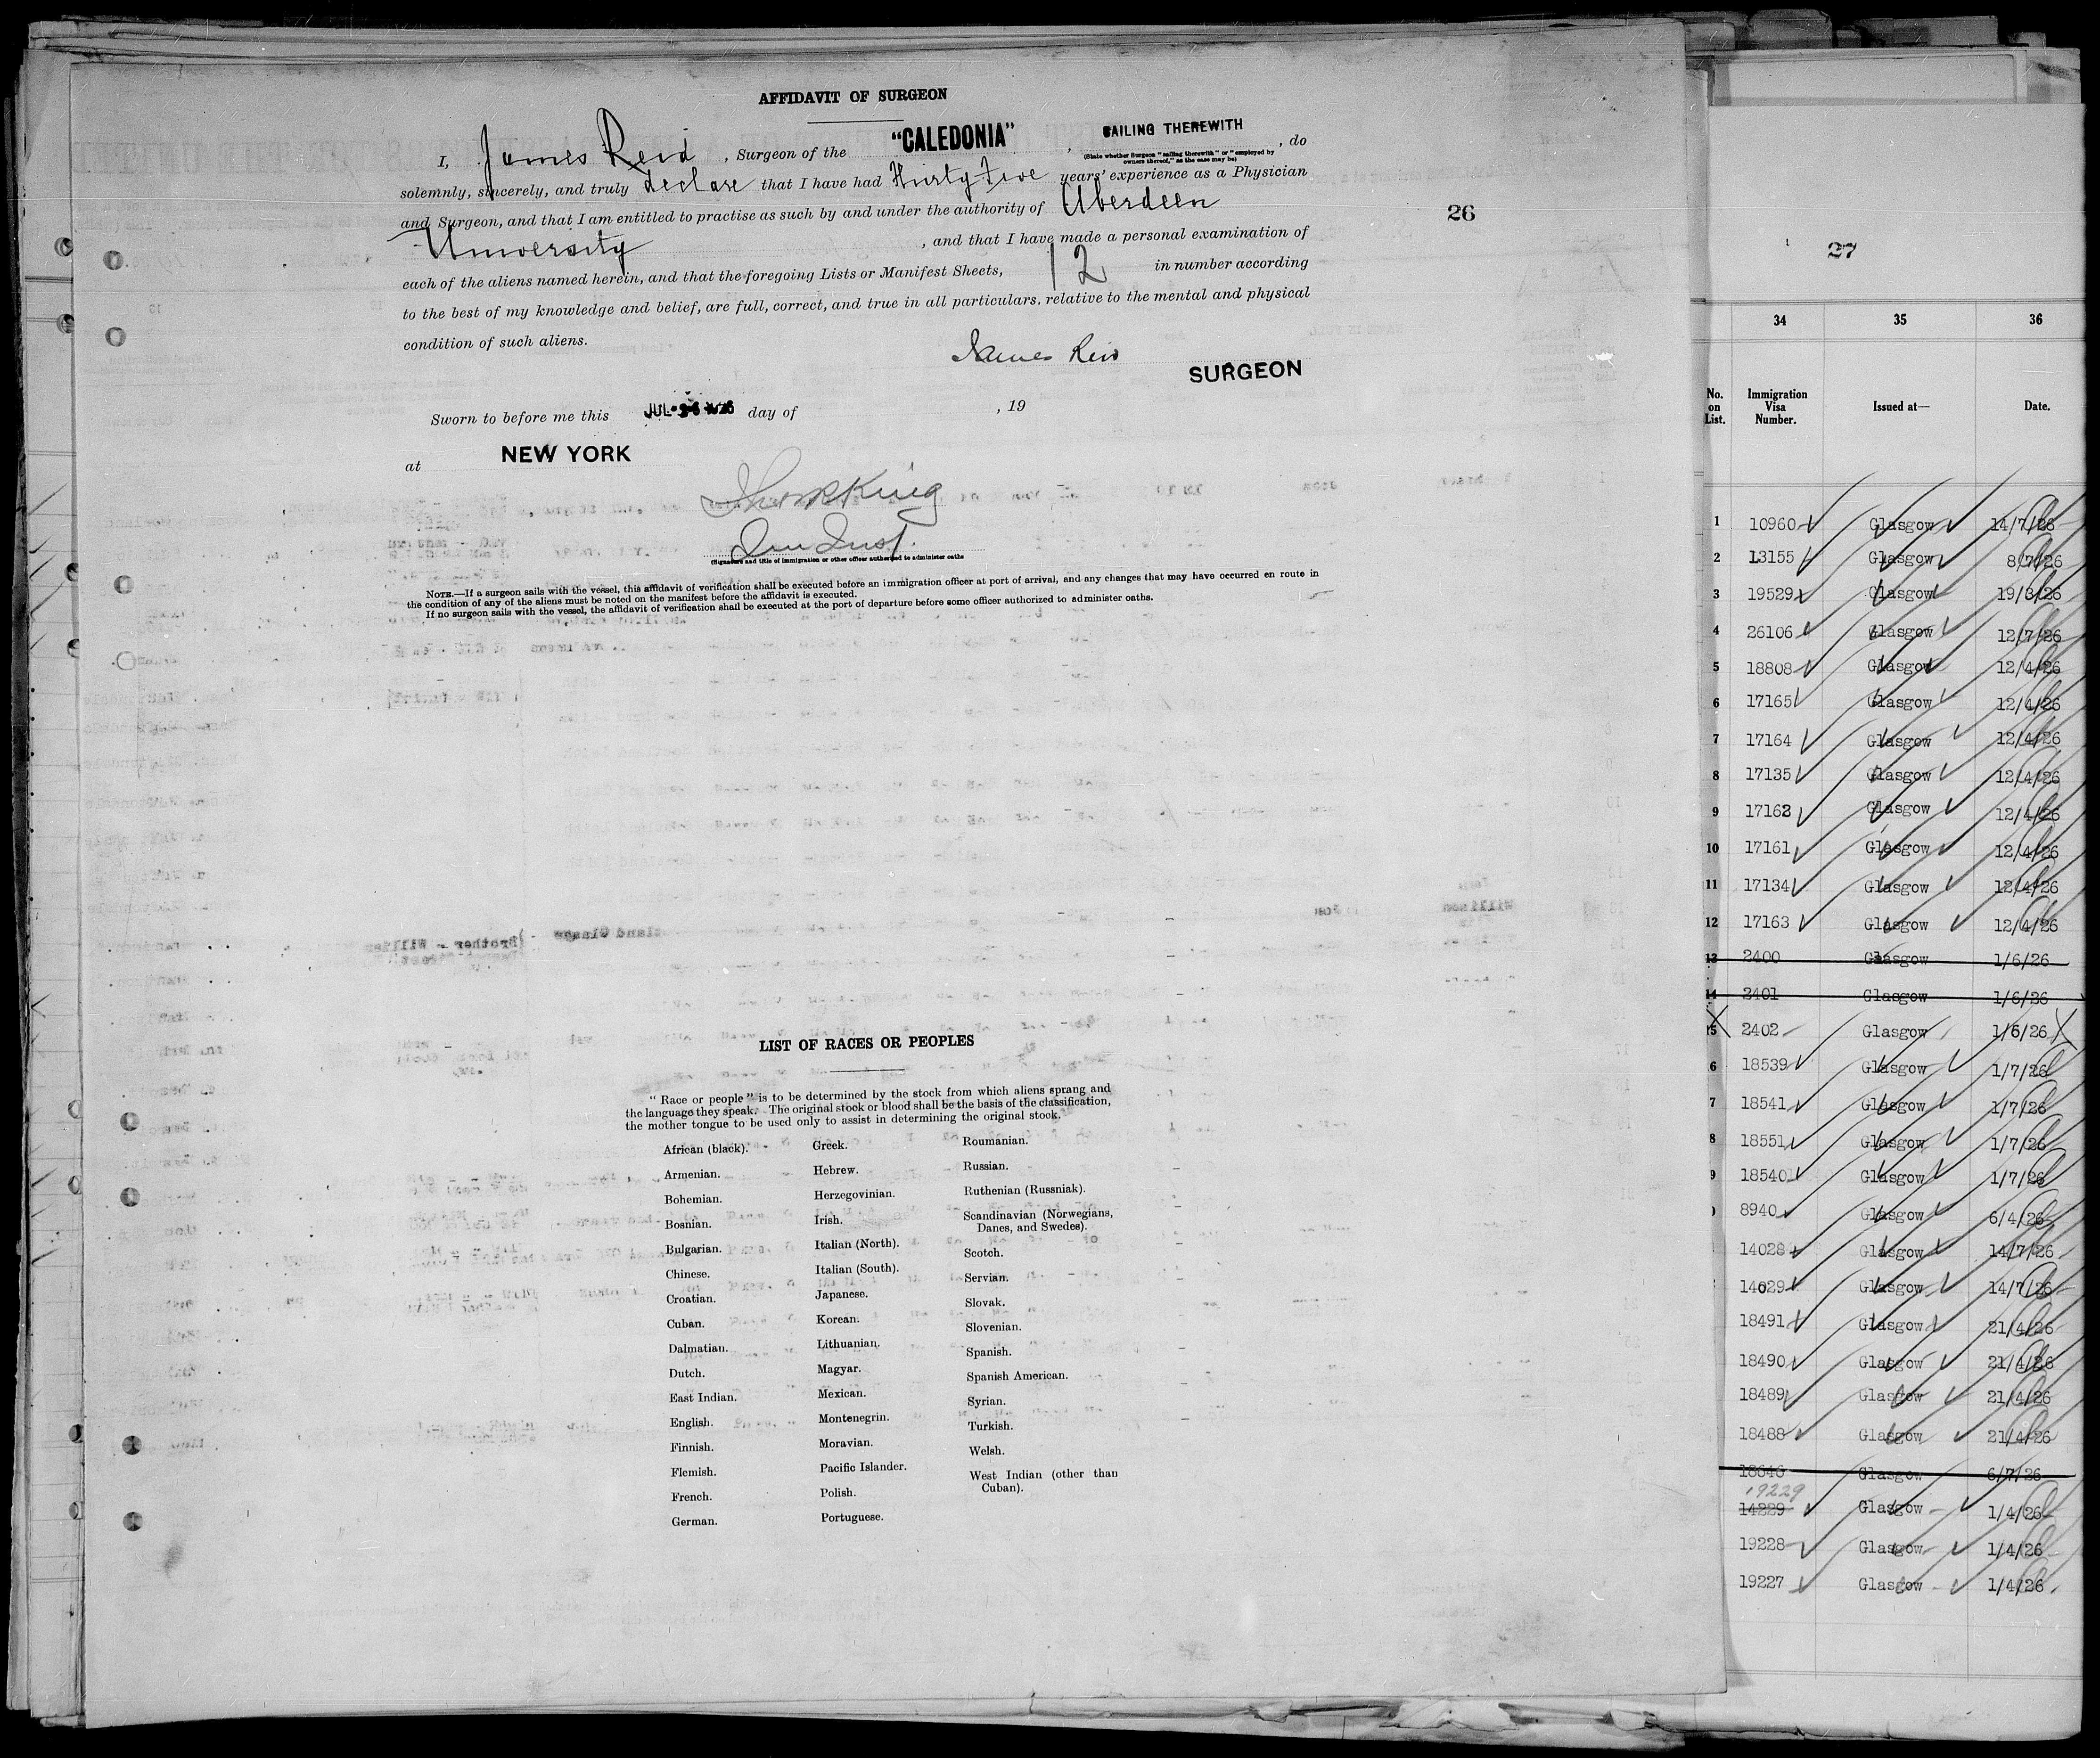 AFFIDAVIT OF SURGEON
I, James Reid, Surgeon of the "CALEDONIA", SAILING THEREWITH, do
(State whether Surgeon "sailing therewith" or "employed by
owners thereof," as the case may be)
solemnly, sincerely, and truly declare that I have had Thirty five years' experience as a Physician
and Surgeon, and that I am entitled to practise as such by and under the authority of Aberdeen
University, and that I have made a personal examination of
each of the aliens named herein, and that the foregoing Lists or Manifest Sheets, 12 in number according
to the best of my knowledge and belief, are full, correct, and true in all particulars, relative to the mental and physical
condition of such aliens.
James Reid
SURGEON
Sworn to before me this JUL 26 1926 day of , 19
at NEW YORK
King
Imm Insp.
(Signature and title of immigration or other officer authorized to administer oaths
NOTE.—If a surgeon sails with the vessel, this affidavit of verification shall be executed before an immigration officer at port of arrival, and any changes that may have occurred en route in
the condition of any of the aliens must be noted on the manifest before the affidavit is executed.
If no surgeon sails with the vessel, the affidavit of verification shall be executed at the port of departure before some officer authorized to administer oaths.
26
LIST OF RACES OR PEOPLES
"Race or people" is to be determined by the stock from which aliens sprang and
the language they speak. The original stock or blood shall be the basis of the classification,
the mother tongue to be used only to assist in determining the original stock.
African (black).
Armenian.
Bohemian.
Bosnian.
Bulgarian.
Chinese.
Croatian.
Cuban.
Dalmatian.
Dutch.
East Indian.
English.
Finnish.
Flemish.
French.
German.
Greek.
Hebrew.
Herzegovinian.
Irish.
Italian (North).
Italian (South).
Japanese.
Korean.
Lithuanian.
Magyar.
Mexican.
Montenegrin.
Moravian.
Pacific Islander.
Polish.
Portuguese.
Roumanian.
Russian.
Ruthenian (Russniak).
Scandinavian (Norwegians,
Danes, and Swedes).
Scotch.
Servian.
Slovak.
Slovenian.
Spanish.
Spanish American.
Syrian.
Turkish.
Welsh.
West Indian (other than
Cuban).
27
34 35 36
No. on List. Immigration Visa Number. Issued at— Date.
1 10960 Glasgow 14/7/26
2 13155 Glasgow 8/7/26
3 19529 Glasgow 19/3/26
4 26106 Glasgow 12/7/26
5 18808 Glasgow 12/4/26
6 17165 Glasgow 12/4/26
7 17164 Glasgow 12/4/26
8 17135 Glasgow 12/4/26
9 17162 Glasgow 12/4/26
10 17161 Glasgow 12/4/26
11 17134 Glasgow 12/4/26
12 17163 Glasgow 12/4/26
13 2400 Glasgow 1/6/26
14 2401 Glasgow 1/6/26
15 2402 Glasgow 1/6/26
6 18539 Glasgow 1/7/26
7 18541 Glasgow 1/7/26
8 18551 Glasgow 1/7/26
9 18540 Glasgow 1/7/26
8940 Glasgow 6/4/26
14028 Glasgow 14/7/26
14029 Glasgow 14/7/26
18491 Glasgow 21/4/26
18490 Glasgow 21/4/26
18489 Glasgow 21/4/26
18488 Glasgow 21/4/26
18646 Glasgow 6/7/26
19229
14229 Glasgow 1/4/26
19228 Glasgow 1/4/26
19227 Glasgow 1/4/26